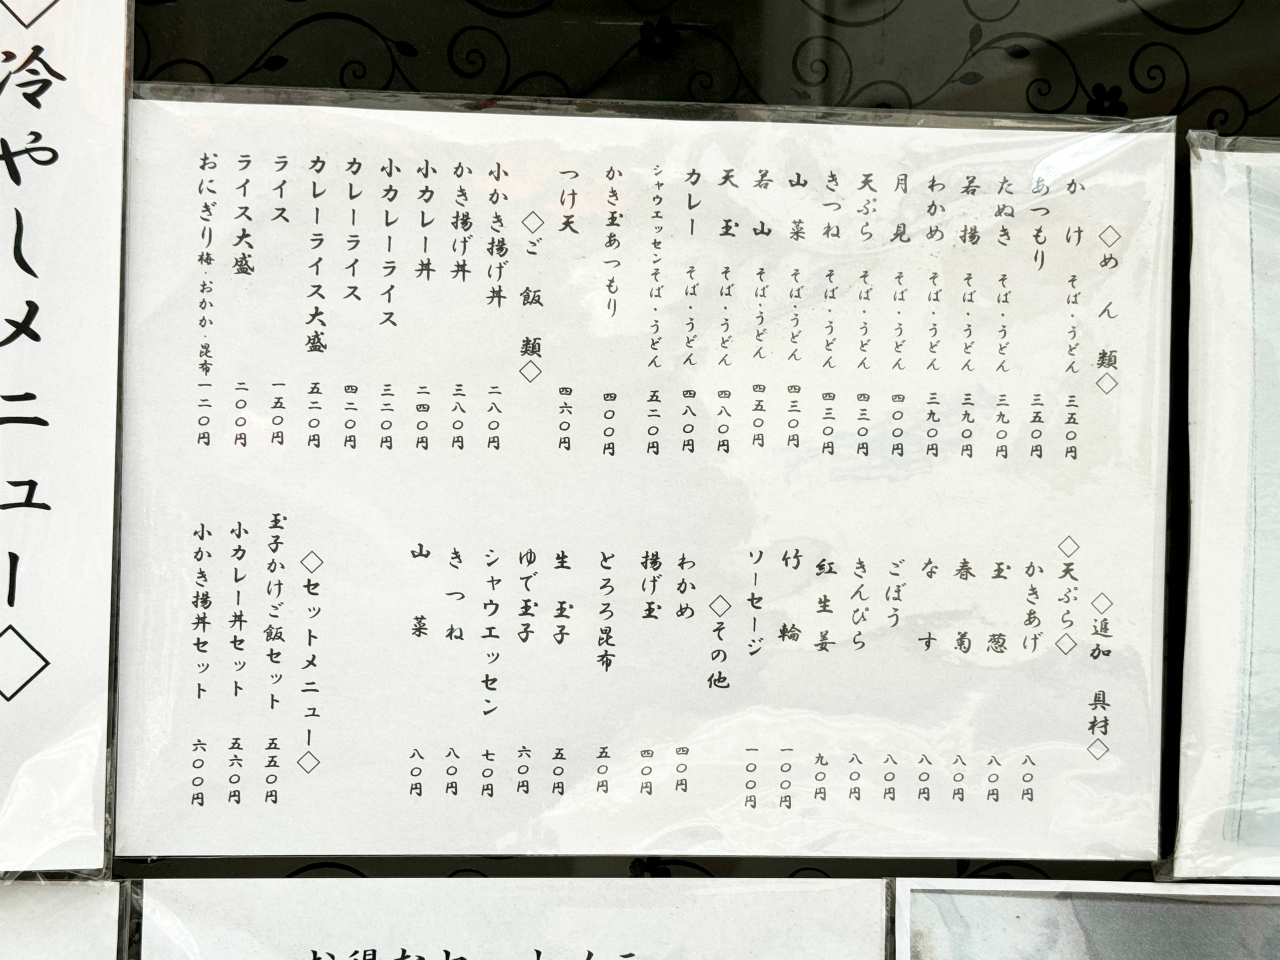 ◇めん類◇
かけ そば・うどん 三五〇円
あつもり 三五〇円
たぬき そば・うどん 三九〇円
若揚 そば・うどん 三九〇円
わかめ そば・うどん 三九〇円
月見 そば・うどん 四〇〇円
天ぷら そば・うどん 四三〇円
きつね そば・うどん 四三〇円
山菜 そば・うどん 四三〇円
若山 そば・うどん 四五〇円
天玉 そば・うどん 四八〇円
カレー そば・うどん 四八〇円
シャウエッセンそば・うどん 五二〇円
かき玉あつもり 四〇〇円
つけ天 四六〇円
◇ご飯類◇
小かき揚げ丼 二八〇円
かき揚げ丼 三八〇円
小カレー丼 二四〇円
小カレーライス 三二〇円
カレーライス 四二〇円
カレーライス大盛 五二〇円
ライス 一五〇円
ライス大盛 二〇〇円
おにぎり梅・おかか・昆布 一二〇円
◇追加 具材◇
◇天ぷら◇
かきあげ 八〇円
玉葱 八〇円
春菊 八〇円
なす 八〇円
ごぼう 八〇円
きんぴら 八〇円
紅生姜 九〇円
竹輪 一〇〇円
ソーセージ 一〇〇円
◇その他
わかめ 四〇円
揚げ玉 四〇円
とろろ昆布 五〇円
生玉子 五〇円
ゆで玉子 六〇円
シャウエッセン 七〇円
きつね 八〇円
山菜 八〇円
◇セットメニュー◇
玉子かけご飯セット 五五〇円
小カレー丼セット 五六〇円
小かき揚丼セット 六〇〇円
◇冷やしメニュー◇